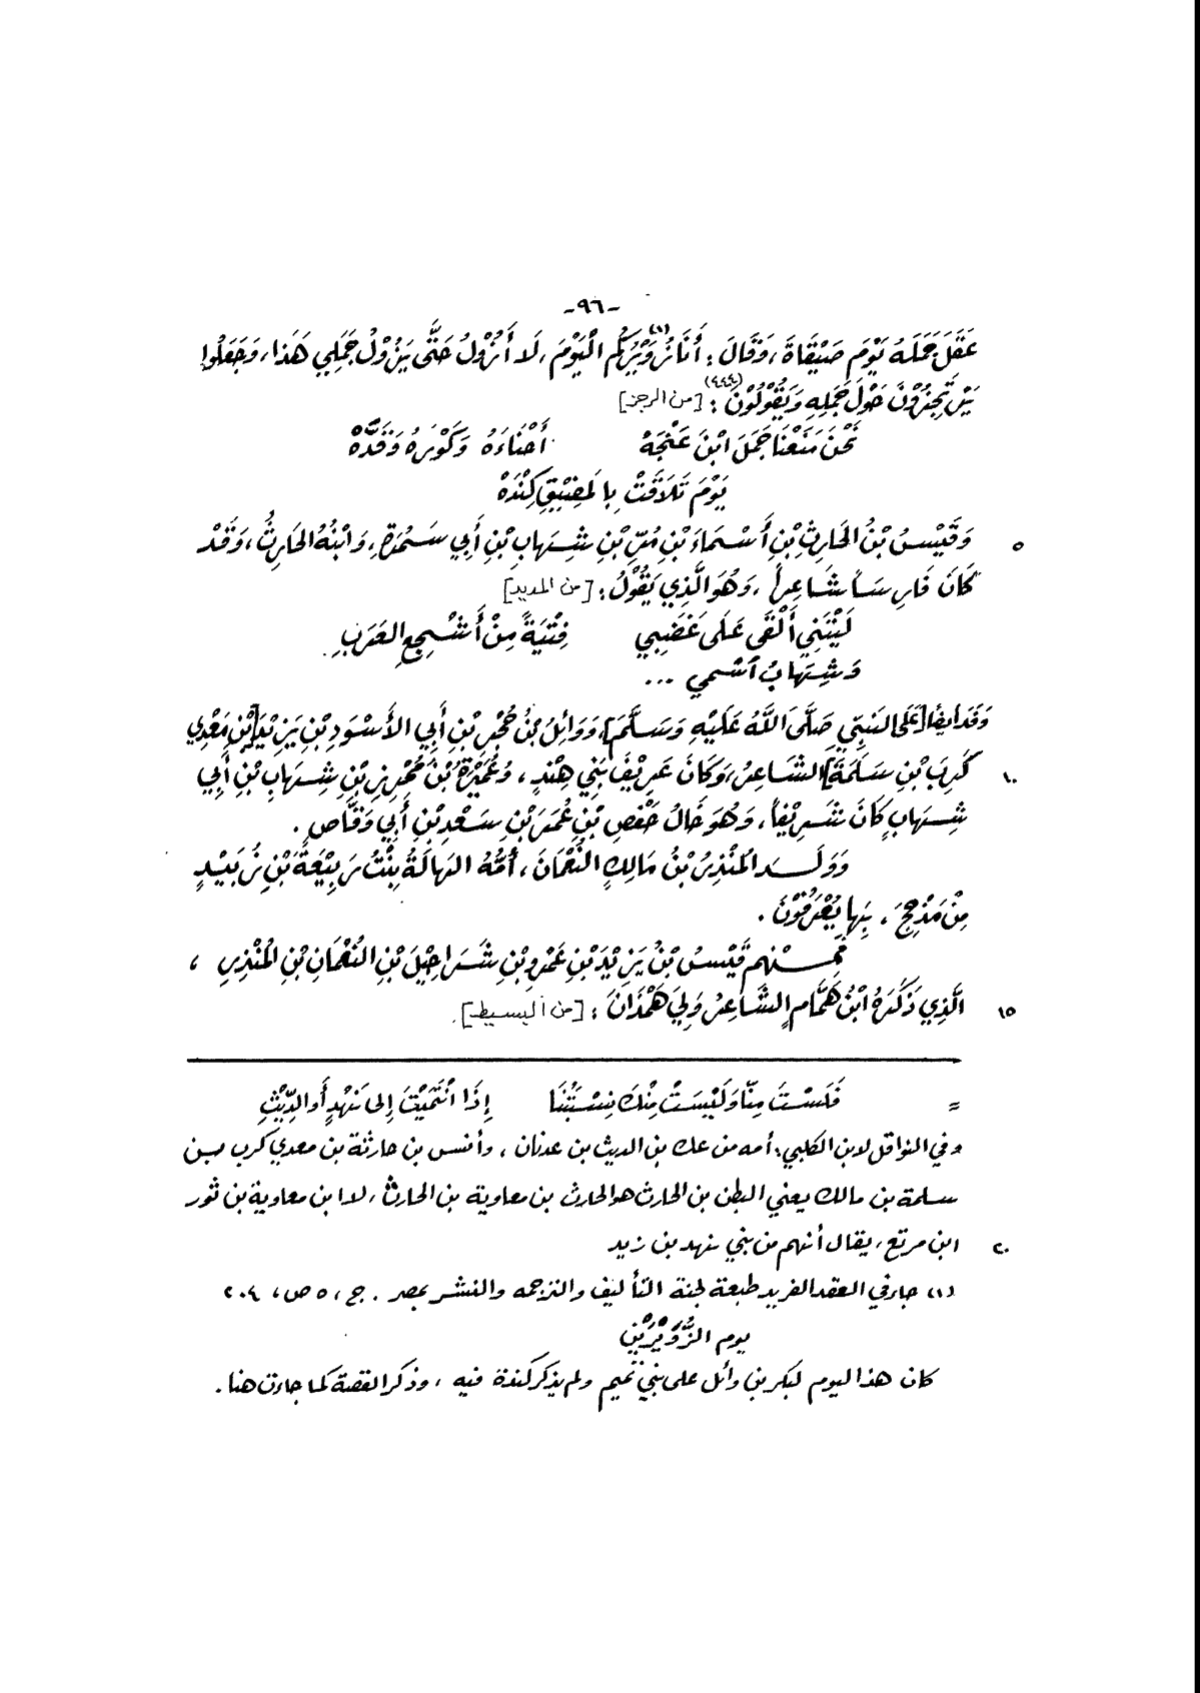 -٩٦-
عَقَلَ جَمَلَهُ يَوْمَ صَيْقَاةَ، وَقَالَ: أَنَا زُوَيْرُكُم (١) الْيَوْمَ، لَا أَزُوْلُ حَتَّى يَزُوْلُ جَمَلِي هَذَا، وَجَعَلُوا
يَرْتَجِزُوْنَ حَوْلَ جَمَلِهِ وَيَقُوْلُوْنَ (٤٤٤): [من الرجز]
نَحْنُ مَنَعْنَا جَمَلَ ابْنَ عَنْجَهْ أَحْنَاءَهُ وَكَوْرَهُ وَقَدَّهْ
يَوْمَ تَلَاقَتْ بِالمَضِيْقِ كِنْدَهْ
٥ وَقَيْسُ بْنُ الحَارِثِ بْنِ أَسْمَاءَ بْنِ مُرِّ بْنِ شِهَابِ بْنِ أَبِي سَمُرَةَ، وَابْنُهُ الحَارِثُ، وَقَدْ
كَانَ فَارِسَاً شَاعِراً، وَهُوَ الَّذِي يَقُوْلُ: [من المديد]
لَيْتَنِي أَلْقَى عَلَى غَضَبِي فِتْيَةً مِنْ أَشْجِعِ العَرَبِ
وَشِهَابُ اسْمي ...
وَقَد أيضًا [عَلَى النَبِيِّ صَلَّى اللَّهُ عَلَيْهِ وَسَلَّمَ]، وَوَائِلُ بْنُ حُجْرِ بْنِ أَبِي الأَسْوَدِ بْنِ يَزِيْدَ [بْنِ مَعْدِي
١٠ كَرِبَ بْنِ سَلَمَةَ] الشَاعِرُ، وَكَانَ عَرِيْفَ بَنِي هِنْدٍ، وَعُمَيْرَةُ بْنُ مُحْرِزِ بْنِ شِهَابِ بْنِ أَبِي
شِهَابٍ كَانَ شَرِيْفَاً، وَهُوَ خَالُ حَفْصِ بْنِ عُمَرَ بْنِ سَعْدِ بْنِ أَبِي وَقَّاصٍ.
وَوَلَدَ المُنْذِرُ بْنُ مَالِكٍ النُّعْمَانَ، أُمُّهُ الهَالَةُ بِنْتُ رَبِيْعَةَ بْنِ زُبَيْدٍ
مِنْ مَذْحِجَ، بِهَا يُعْرَفُوْنَ.
فَمِنْهم قَيْسُ بْنُ يَزِيْدَ بْنِ عَمْرِو بْنِ شَرَاحِيْلَ بْنِ النُعْمَانِ بْنِ المُنْذِرِ،
١٥ الَّذِي ذَكَرَهُ ابْنُ هَمَّامٍ الشَاعِرُ وَلِيَ هَمْدَانَ: [من البسيط]
= فَلَسْتَ مِنّا وَلَيْسَتْ مِنْكَ نِسْبَتُنَا إِذَا انْتَمَيْتَ إِلَى نَهْدٍ أَو الدِّيْثِ
وفي النواقل لابن الكلبي: أمه من عك بن الديث بن عدنان، وأنس بن حارثة بن معدي كرب بن
سلمة بن مالك يعني البطن بن الحارث هو الحارث بن معاوية بن الحارث، لا ابن معاوية بن ثور
٢٠ ابن مرتع، يقال أنهم من بني نهد بن زيد
(١) جاء في العقد الفريد طبعة لجنة التأليف والترجمه والنشر بمصر. ج، ٥ ص، ٢٠٤
يوم الزُّوَيْرَيْنِ
كان هذا اليوم لبكر بن وائل على بني تميم ولم يذكر كندة فيه، وذكر القصة كما جاءت هنا.